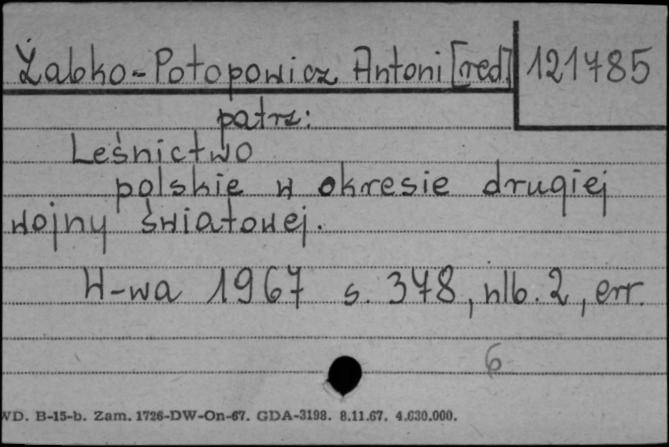 Żabko-Potopowicz Antoni [red] 121785
patrz:
Leśnictwo
polskie w okresie drugiej
wojny światowej.
W-wa 1967 s. 378, nlb. 2, err.
6
WD. B-15-b. Zam. 1726-DW-On-67. GDA-3198. 8.11.67. 4.630.000.